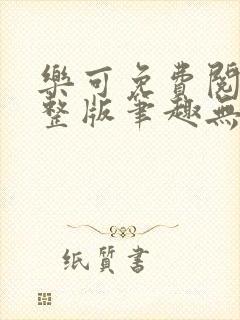 樂可免費閱
整版筆趣無
纸質書